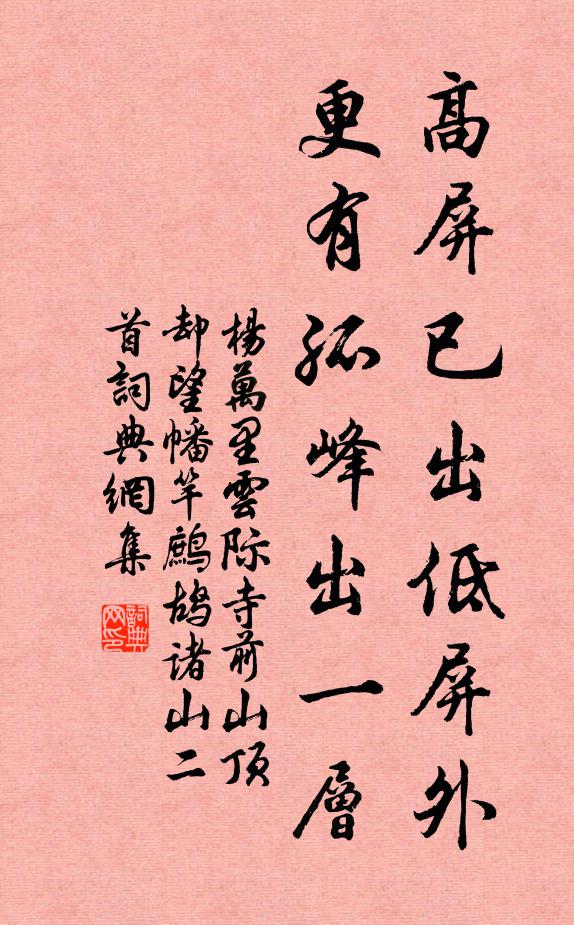 高屏已出低屏外
更有孤峰出一層
楊萬里雲际寺前山顶
却望幡竿鷓鴣诸山二
首詞典網集
詞典
网印